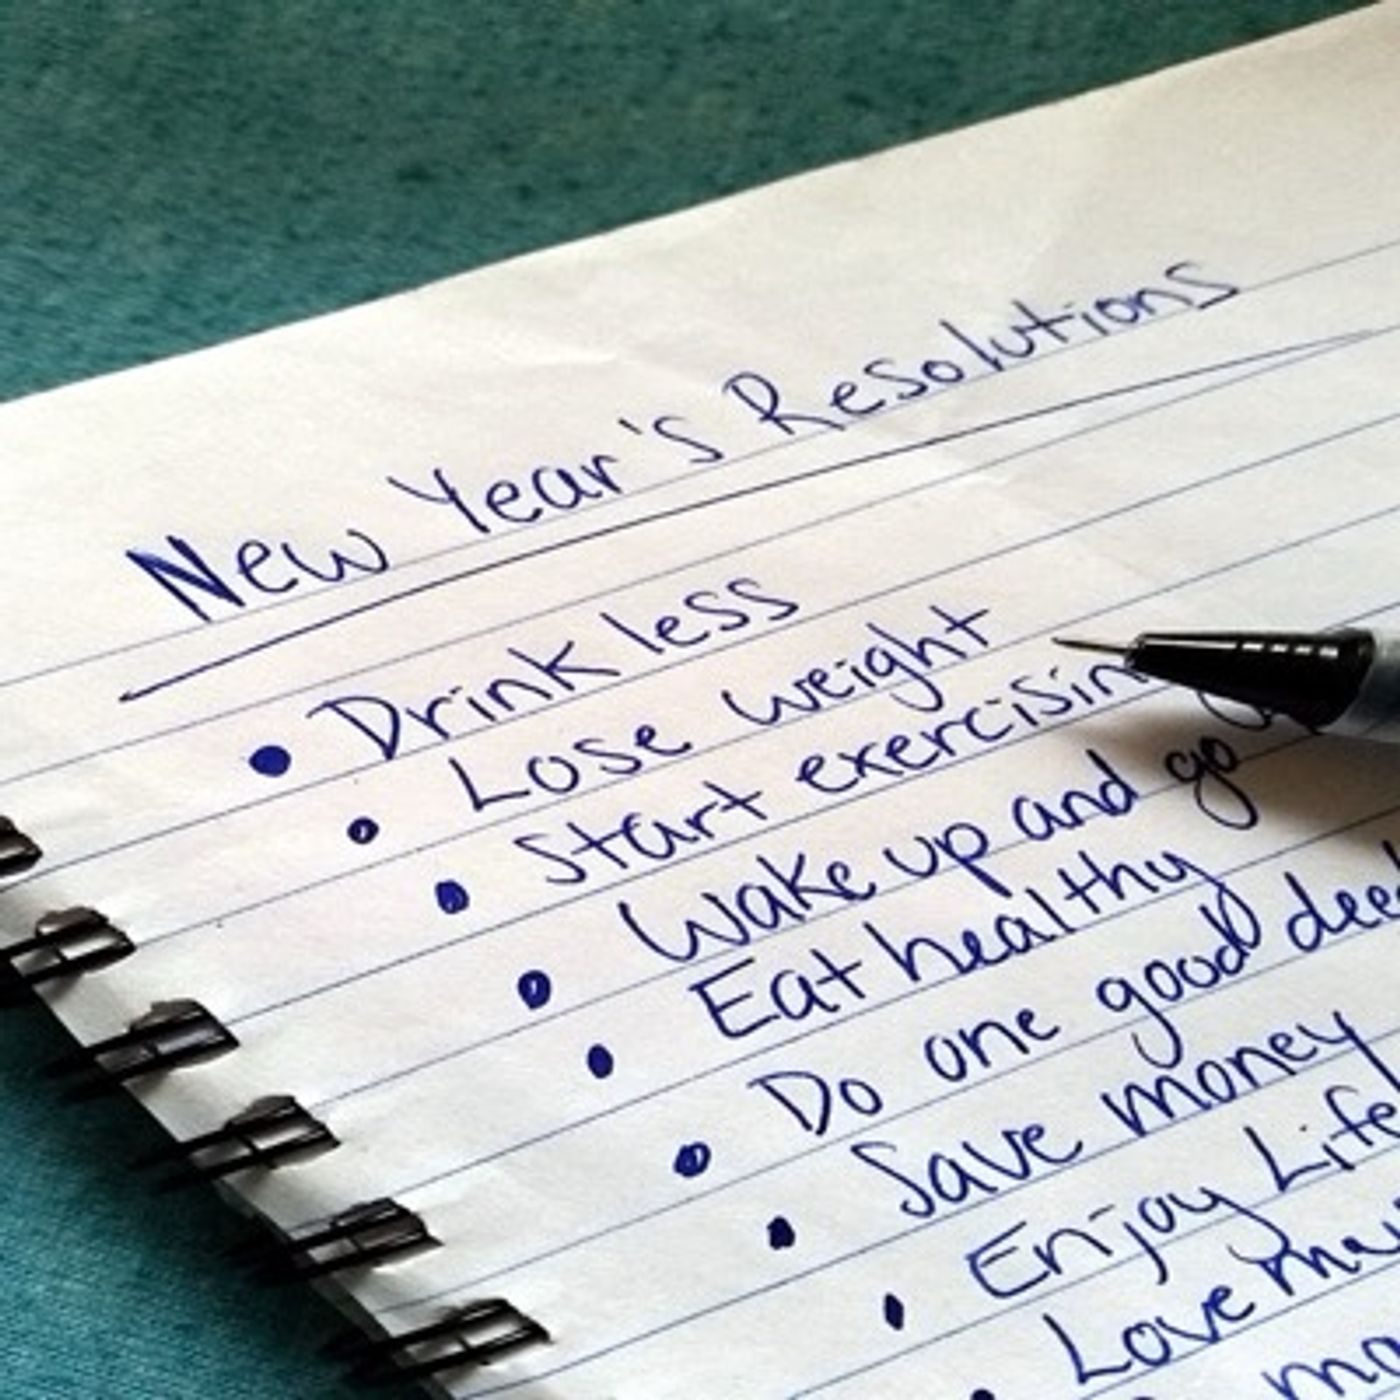 New Year's Resolutions
• Drink less
• Lose weight
• Start exercisin
• Wake up and go
• Eat healthy
• Do one good dee
• Save money
• Enjoy Life
• Love